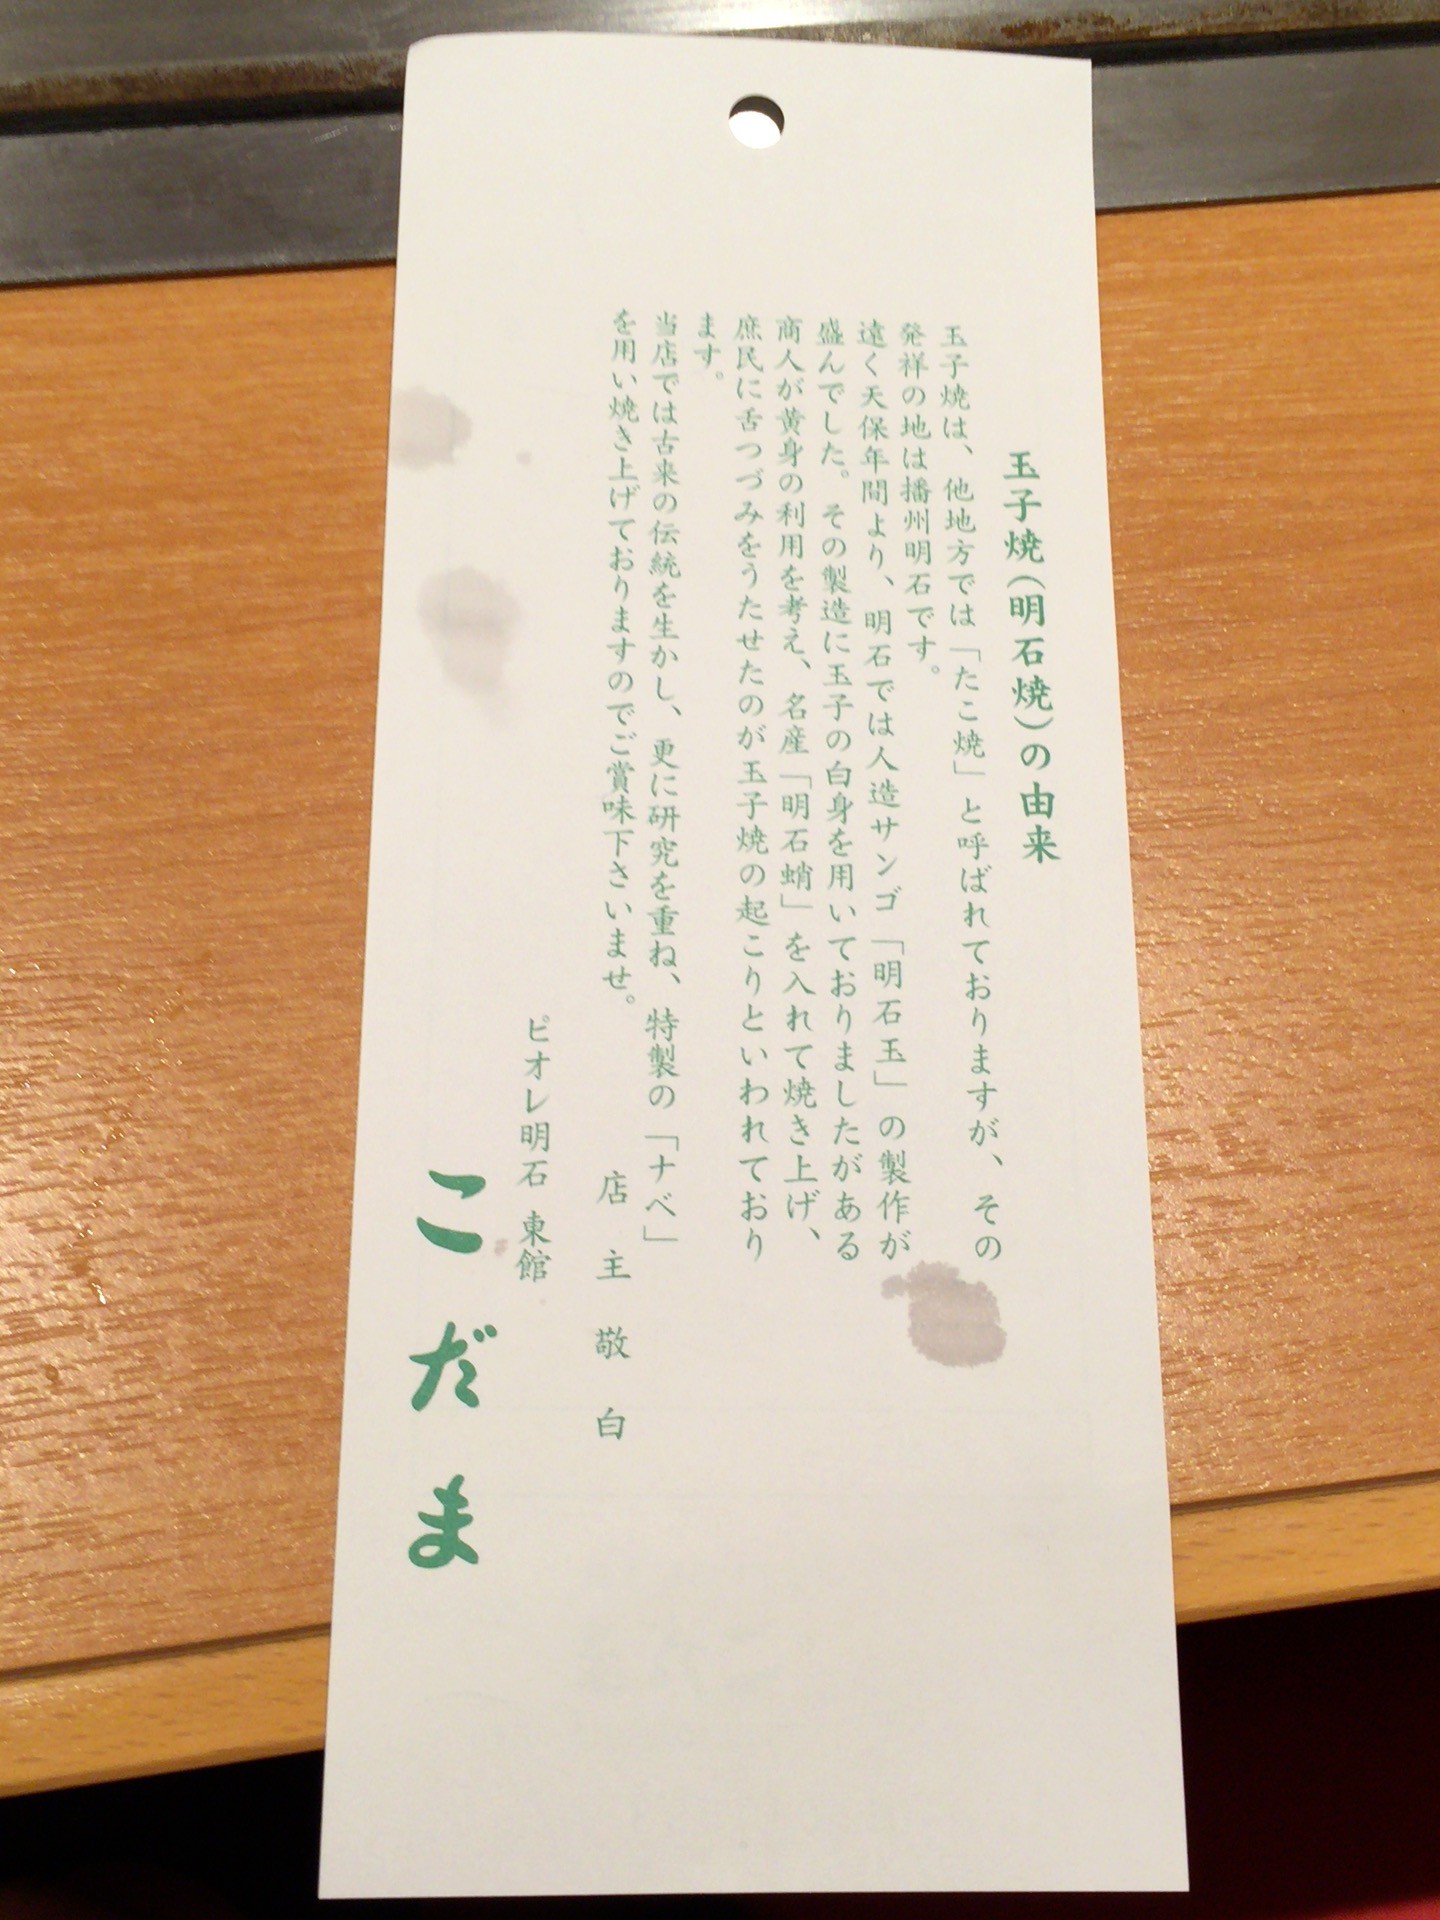 玉子焼(明石焼)の由来
玉子焼は、他地方では「たこ焼」と呼ばれておりますが、その
発祥の地は播州明石です。
遠く天保年間より、明石では人造サンゴ「明石玉」の製作が
盛んでした。その製造に玉子の白身を用いておりましたがある
商人が黄身の利用を考え、名産「明石蛸」を入れて焼き上げ、
庶民に舌つづみをうたせたのが玉子焼の起こりといわれており
ます。
当店では古来の伝統を生かし、更に研究を重ね、特製の「ナベ」
を用い焼き上げておりますのでご賞味下さいませ。
店主敬白
ピオレ明石 東館
こだま